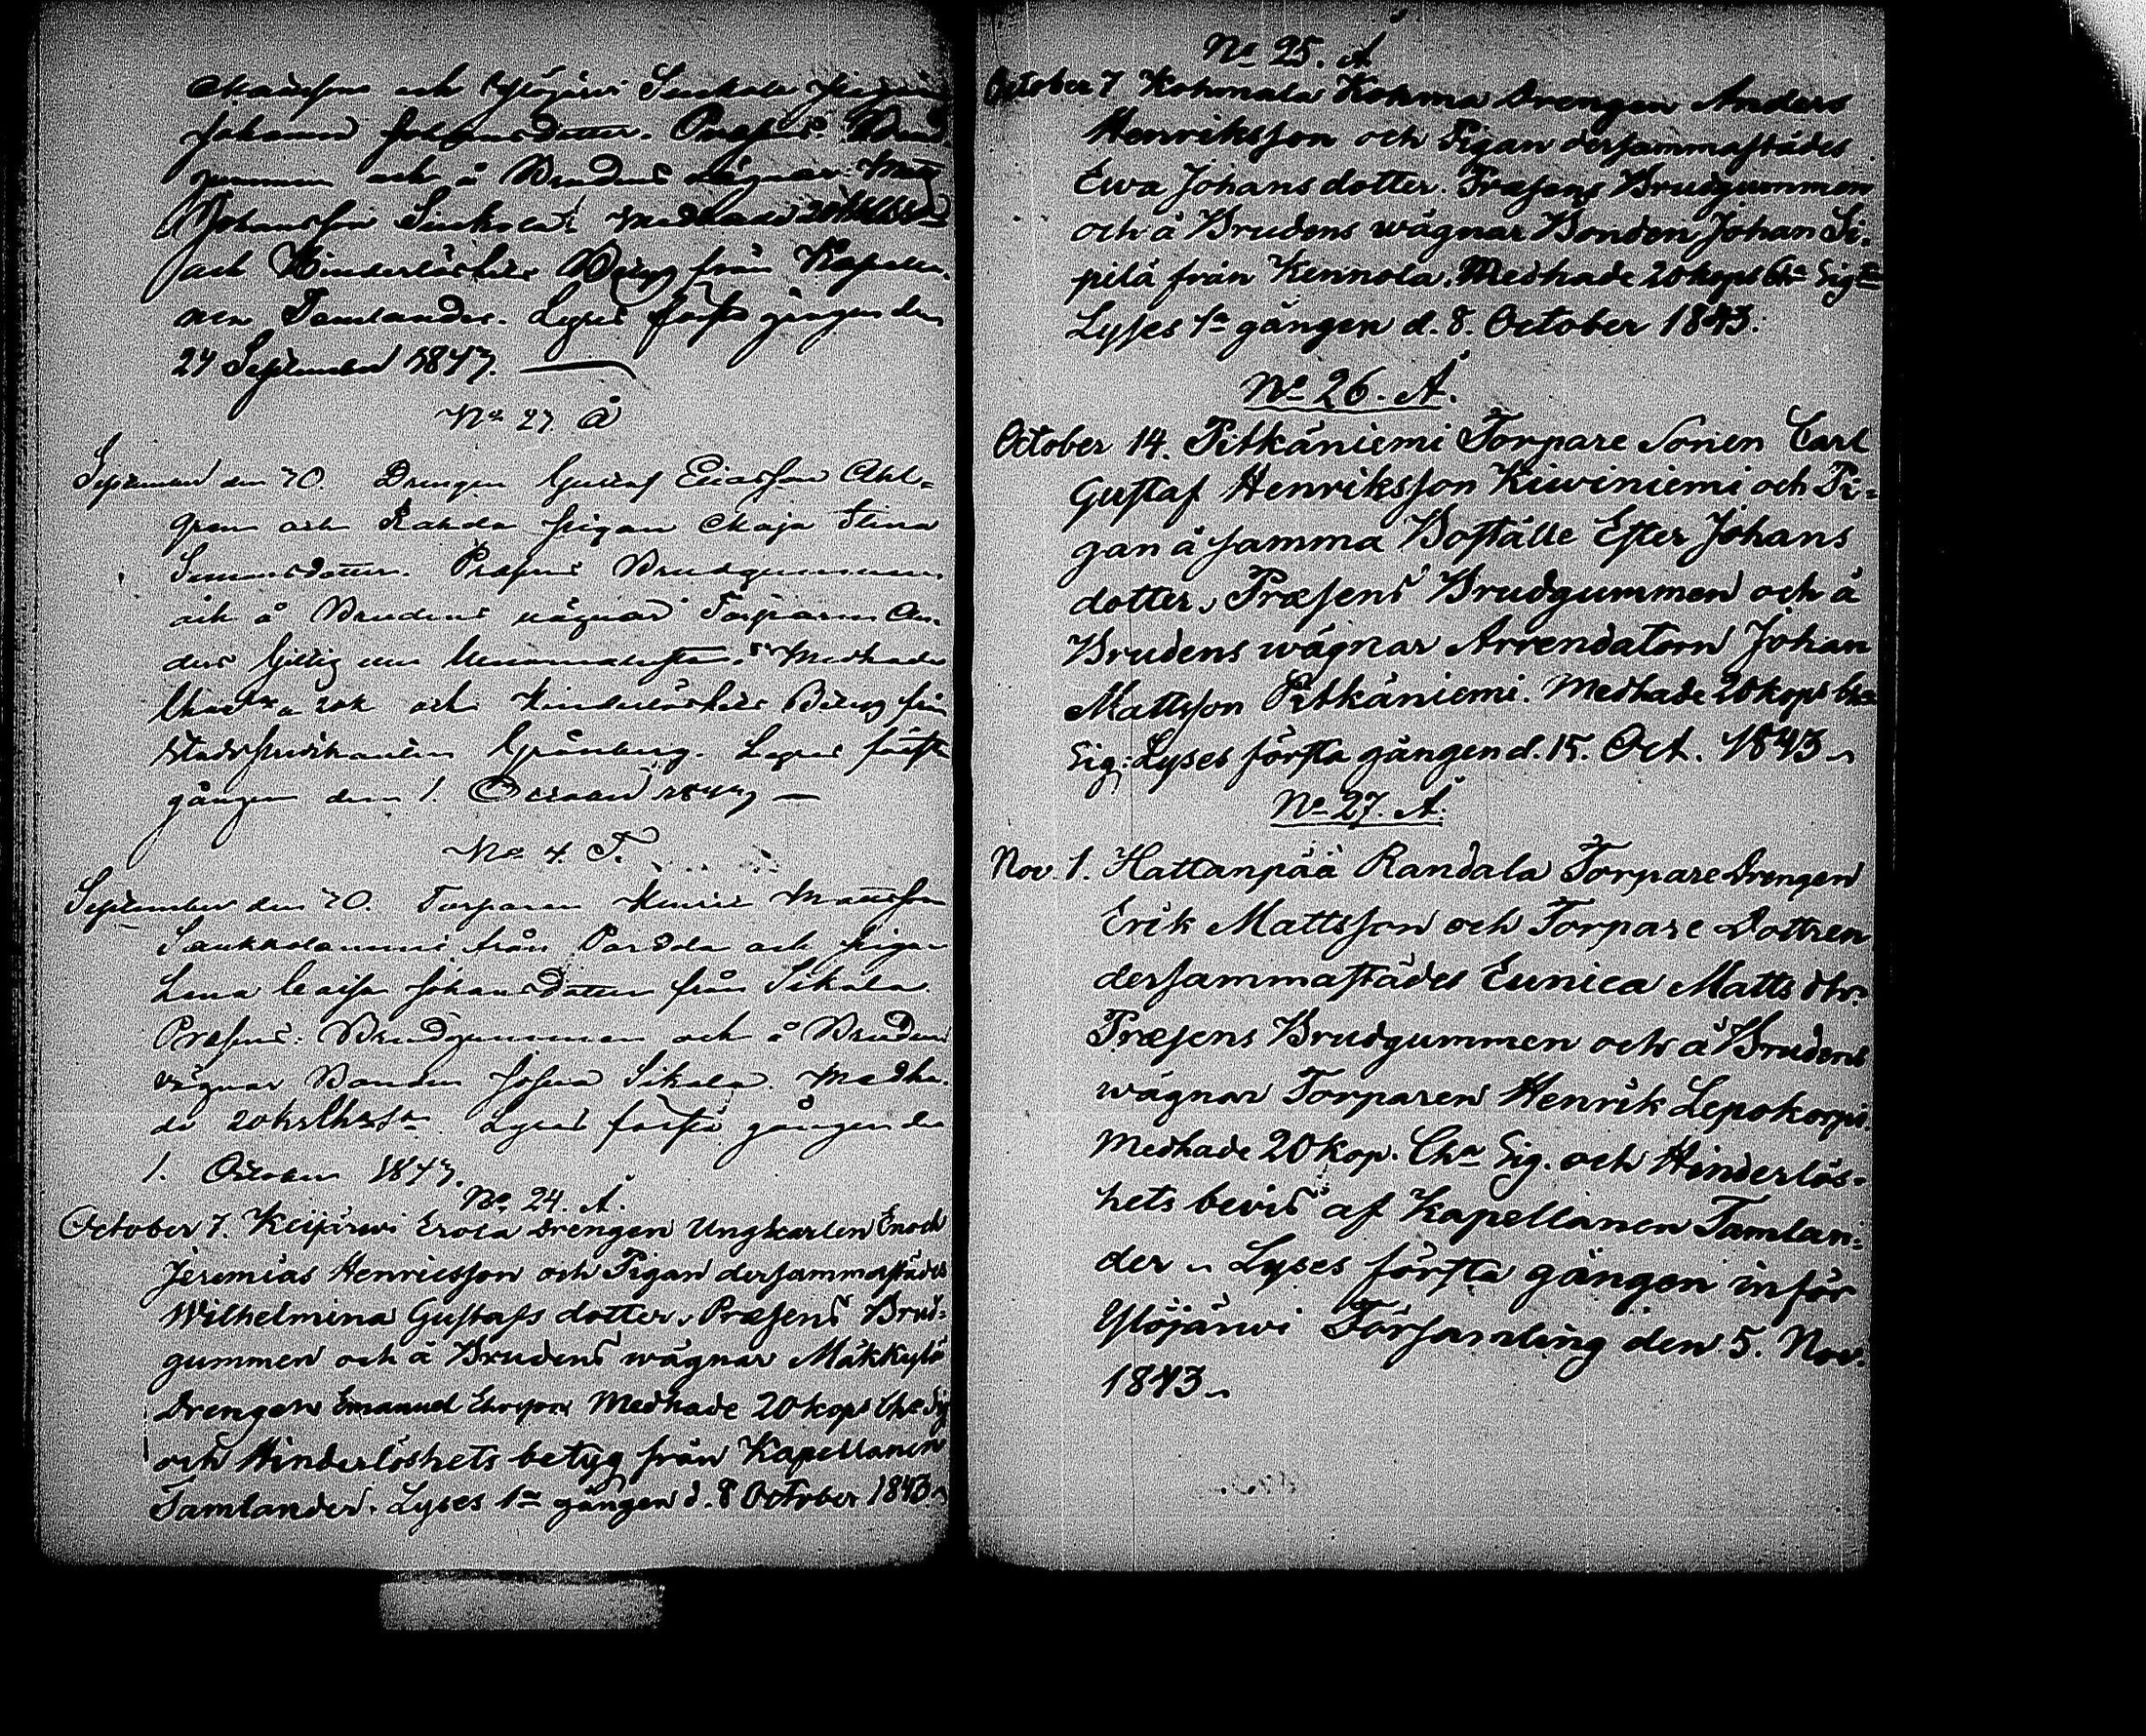 och Ylöjärvi Sinkola Pigan
Johanna Johansdotter. Præsens Brud
gummen och å Brudens vägnar
Johansson Sinkola. Medhade
och Hinderlöshets Betyg från Kapella
nen Tamlander. Lyses första gången den
24 September 1843.
No 23 Å
September den 30. Drengen Gustaf Ericsson Ahl=
gren och Pigan Maja Stina
Simonsdotter. Præsens Brudgummen
och å Brudens vägnar Torparen An
ders Medhade
och Hinderlöshets Betyg från
Grönberg. Lyses första
gången den 1. October 1843
No 4. T.
September den 30. Torparen Henric Mattsson
från och Pigan
Lena Caisa Johansdotter från Sikala.
Præsens: Brudgummen och å Brudens
vägnar Bonden Josua Sikala. Medha.
de 20 Lyses första gången den
1. October 1843.
No 24. Å.
October 7. Keijärwi Erola Drengen Ungkarlen Enoch
Jeremias Henricsson och Pigan dersammastädes
Wilhelmina Gustafs dotter. Præsens Brud=
gummen och å Brudens wägnar Mäkkylä
Drengen Emanuel Medhade 20 kops Cha Sig
och Hinderlöshets betyg från Kapellanen
Tamlander. Lyses 1a gången d. 8 October 1843.
No 25. Å
October 7 Kohmala Kohma Drengen Anders
Henriksson och Pigan dersammastädes
Ewa Johans dotter. Præsens Brudgummen
och å Brudens wägnar Bonden Johan Si.
pilä från Kennola. Medhade 20 kops Cha Sig
Lyses 1a gången d. 8. October 1843.
No 26. Å.
October 14. Pitkäniemi Torpare Sonen Carl
Gustaf Henriksson Kiwiniemi och Pi=
gan å samma Boställe Ester Johans
dotter, Præsens Brudgummen och å
Brudens wägnar Arrendatorn Johan
Mattsson Pitkäniemi. Medhade 20 kops Cha
Sig. Lyses första gången d. 15. Oct. 1843
No 27. Å.
Nov. 1. Hattanpää Randala Torpare Drengen
Erik Mattsson och Torpare Dottren
dersammastädes Eunica Matts dtr.
Præsens Brudgummen och å Brudens
wägnar Torparen Henrik Lepokorpi.
Medhade 20 kop. Cha Sig. och Hinderlös-
hets bevis af Kapellanen Tamlan=
der Lyses första gången inför
Ylöjärwi Församling den 5. Nov.
1843